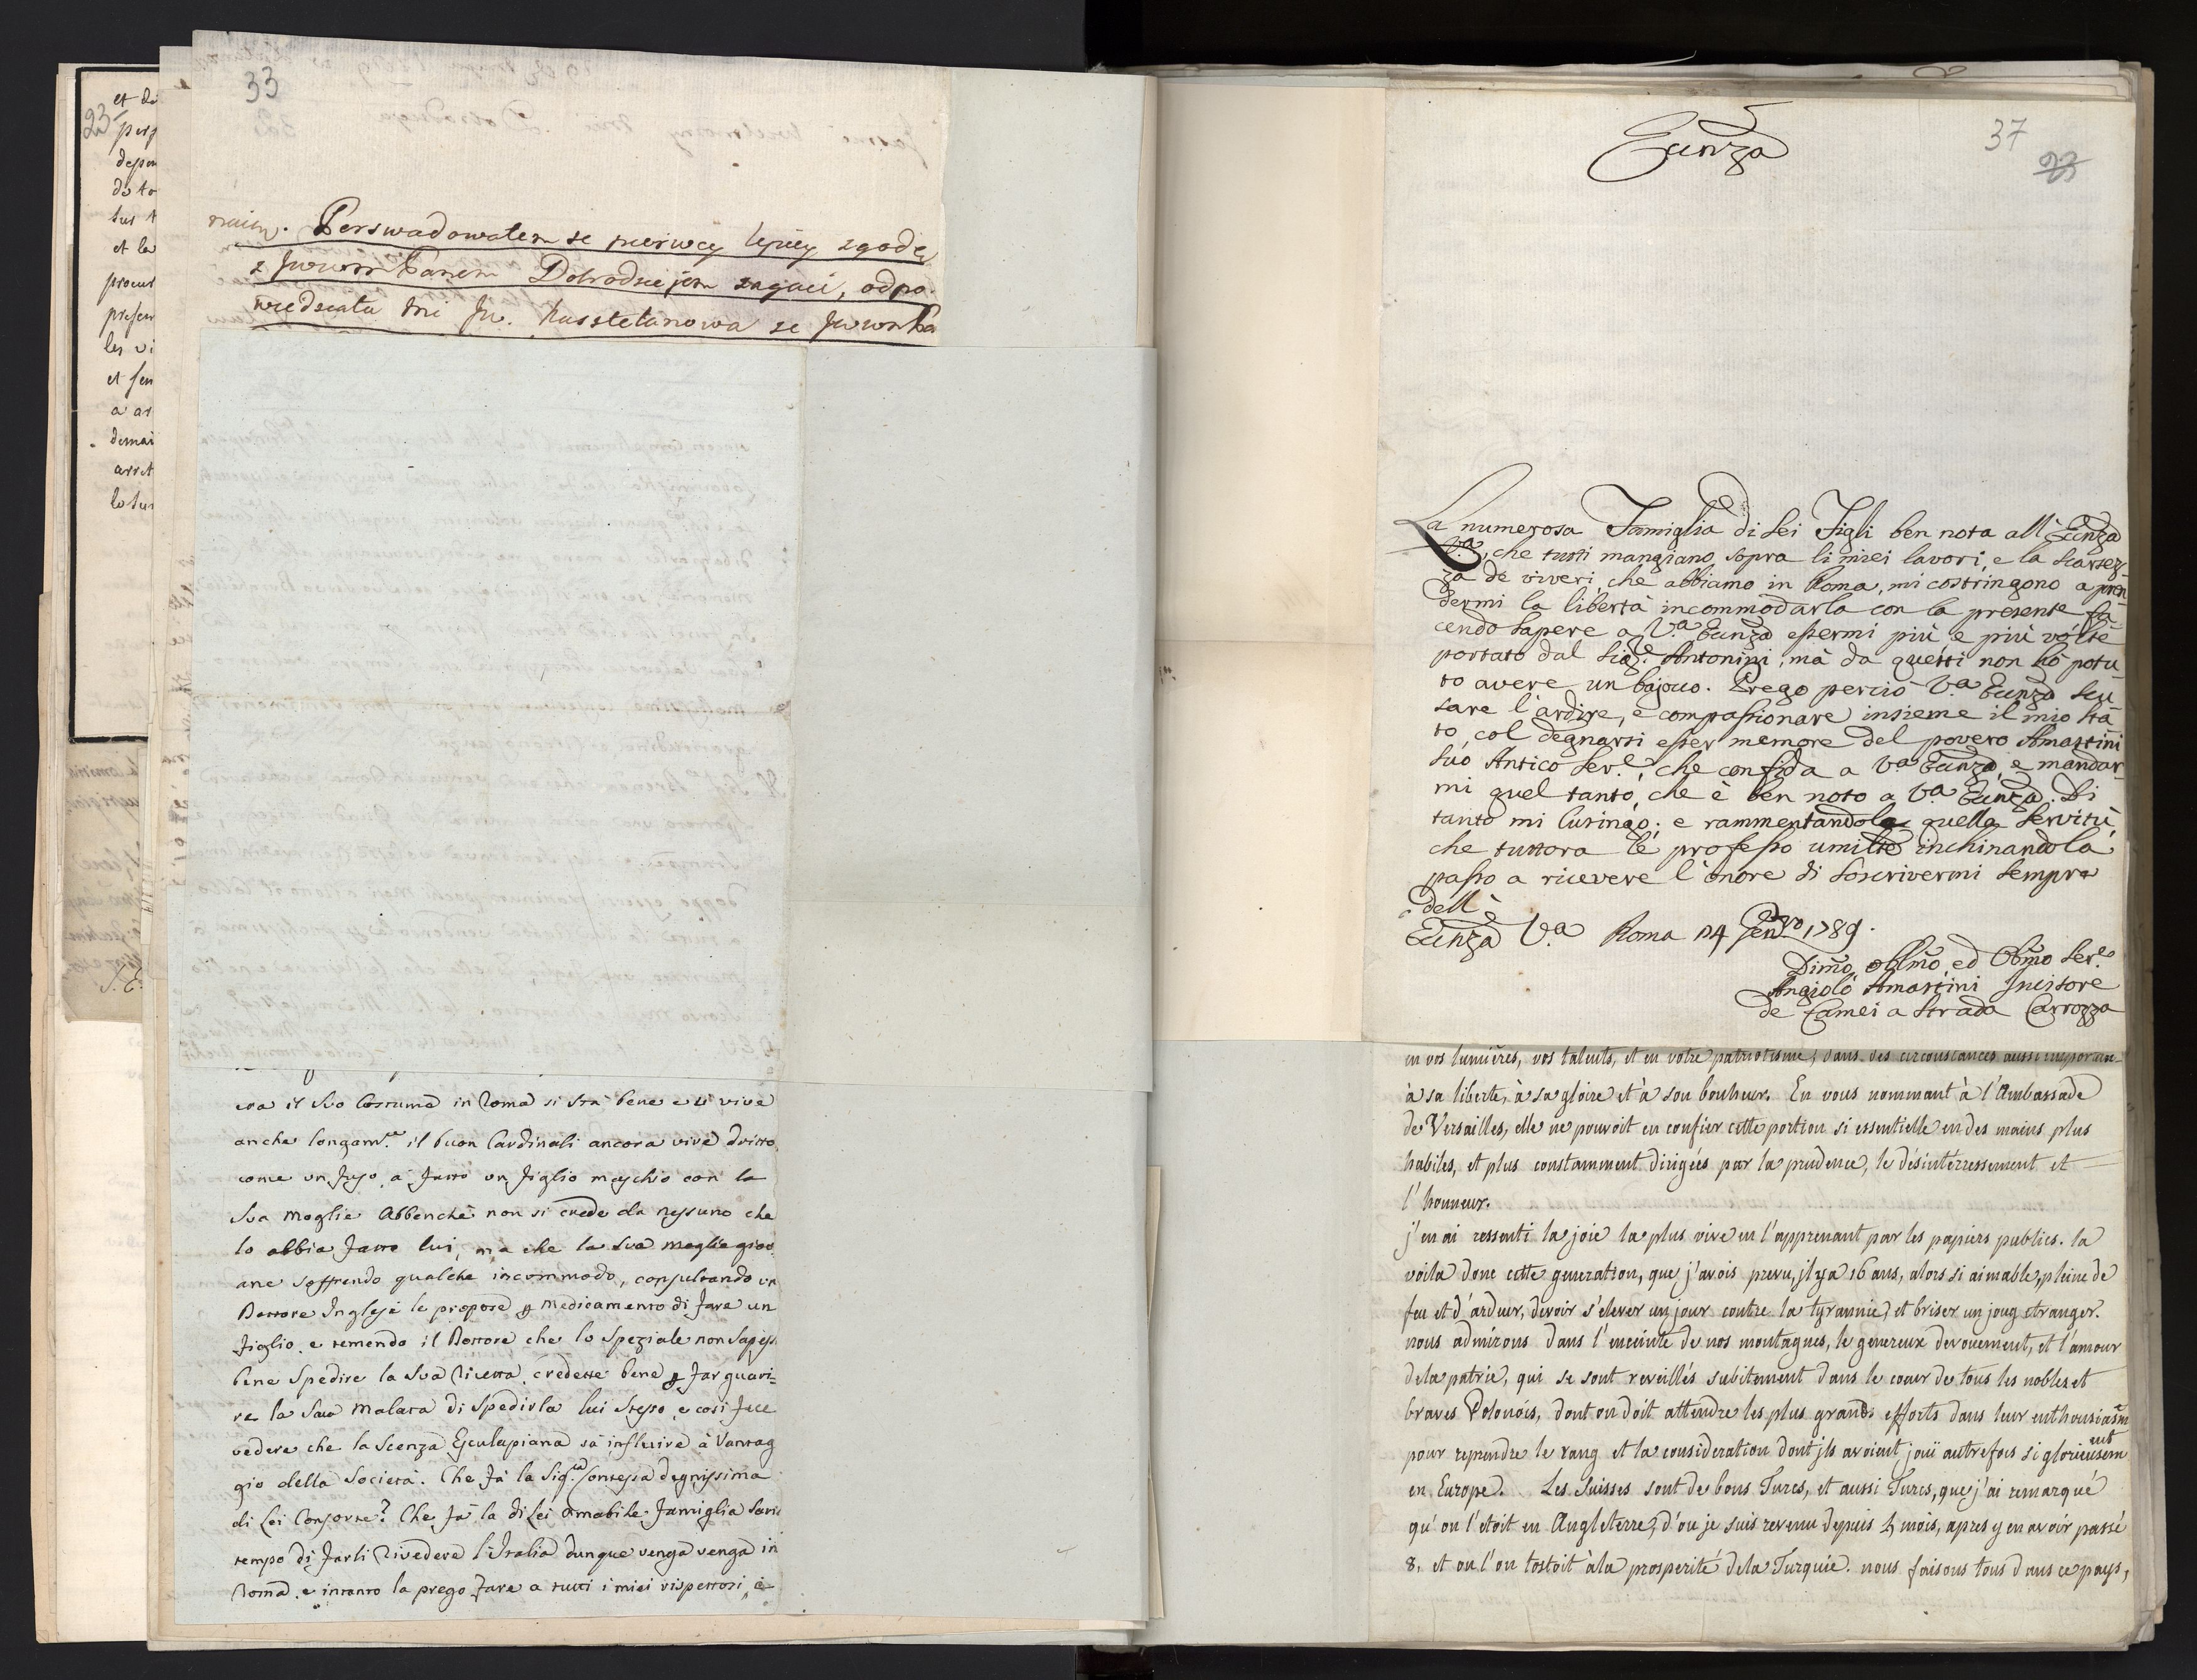 23
et de
perf
depen
de to
sur t
et le
procur
presen
les vi
et sen
a ar
demai
arret
33
Perswadowałem że pierwey lepiey zgodę
z Jwwm Panem Dobrodziejem zagaić, odpo-
wiedziała mi Jw. Kasztelanowa że
era il suo costume in Roma si stà bene e si vive
anche longam.te il buon Cardinali ancora vive dritto
come un fuso, à fatto un figlio maschio con la
sua moglie Abbenche non si crede da nessuno che
lo abbia fatto lui, ma che la sua moglie giov
ane soffrendo qualche incommodo, consultando un
Dottore Inglese le propose p medicamento di fare un
figlio. e temendo il Dottore che lo speziale non sapess
bene spedire la sua ricetta, credette bene p far guari=
re la sua malata di spedirla lui stesso, e cosi fece
vedere che la scenza Esculapiana sà influire à vantag
gio della Società. Che fà la Sig.ra Contessa degnissima
di Lei Consorte? Che fà la di Lei amabile famiglia saria
tempo di farli rivedere l'Italia dunque venga venga in
Roma. e intanto la prego fare a tutti i miei rispettosi, e
37
23
Ecnza
La numerosa Famiglia di sei Figli ben nota all' Ecnza
V.a, che tutti mangiano sopra li miei lavori, e la scarsez
za de viveri, che abbiamo in Roma, mi costringono a pren
dermi la libertà incommodarla con la presente fa
cendo sapere a V.a Ecnza essermi più e più volte
portato dal Sig.e Antonini, mà da questi non hò potu
to avere un bajoco. Prego perciò V.a Ecnza scu
sare l'ardire, e compassionare insieme il mio sta
to, col degnarsi esser memore del povero Amastini
suo Antico Ser.e, che confida a V.a Ecnza, e mandar
mi quel tanto, che è ben noto a V.a Ecnza. Di
tanto mi lusingo; e rammentandole quella servitù,
che tuttora le professo umilte inchinandola,
passo a ricevere l'onore di soscrivermi sempre
dell'
Ecnza V.a Roma 14 Genro 1789.
Dimo, oblmo, ed Obmo Ser.e
Angiolo Amastini Incisore
de Camei a Strada Carrozza
en vos lumières, vos talents, et en votre patriotisme, dans des circonstances aussi importan-
à sa liberté, à sa gloire et à son bonheur. En vous nommant à l'Ambassade
de Versailles, elle ne pouvoit en confier cette portion si essentielle en des mains plus
habiles, et plus constamment dirigées par la prudence, le désinterressement et
l'honneur.
j'en ai ressenti la joie la plus vive en l'apprenant par les papiers publics. la
voila donc cette generation, que j'avois prevu, il y a 16 ans, alors si aimable, pleine de
feu et d'ardeur, devoir s'elever un jour contre la tyrannie, et briser un joug etranger.
nous admirons dans l'enceinte de nos montagnes, le genereux devouement, et l'amour
de la patrie, qui se sont reveillés subitement dans le coeur de tous les nobles et
braves Polonois, dont on doit attendre les plus grands efforts dans leur enthousiasm
pour reprendre le rang et la consideration dont ils avoient joui autrefois si glorieusement
en Europe. Les Suisses sont de bons Turcs, et aussi Turcs, que j'ai remarqué
qu'on l'etoit en Angleterre, d'ou je suis revenu depuis 4 mois, apres y en avoir passé
8, et ou l'on tostoit à la prosperité de la Turquie. nous faisons tous dans ce pays,